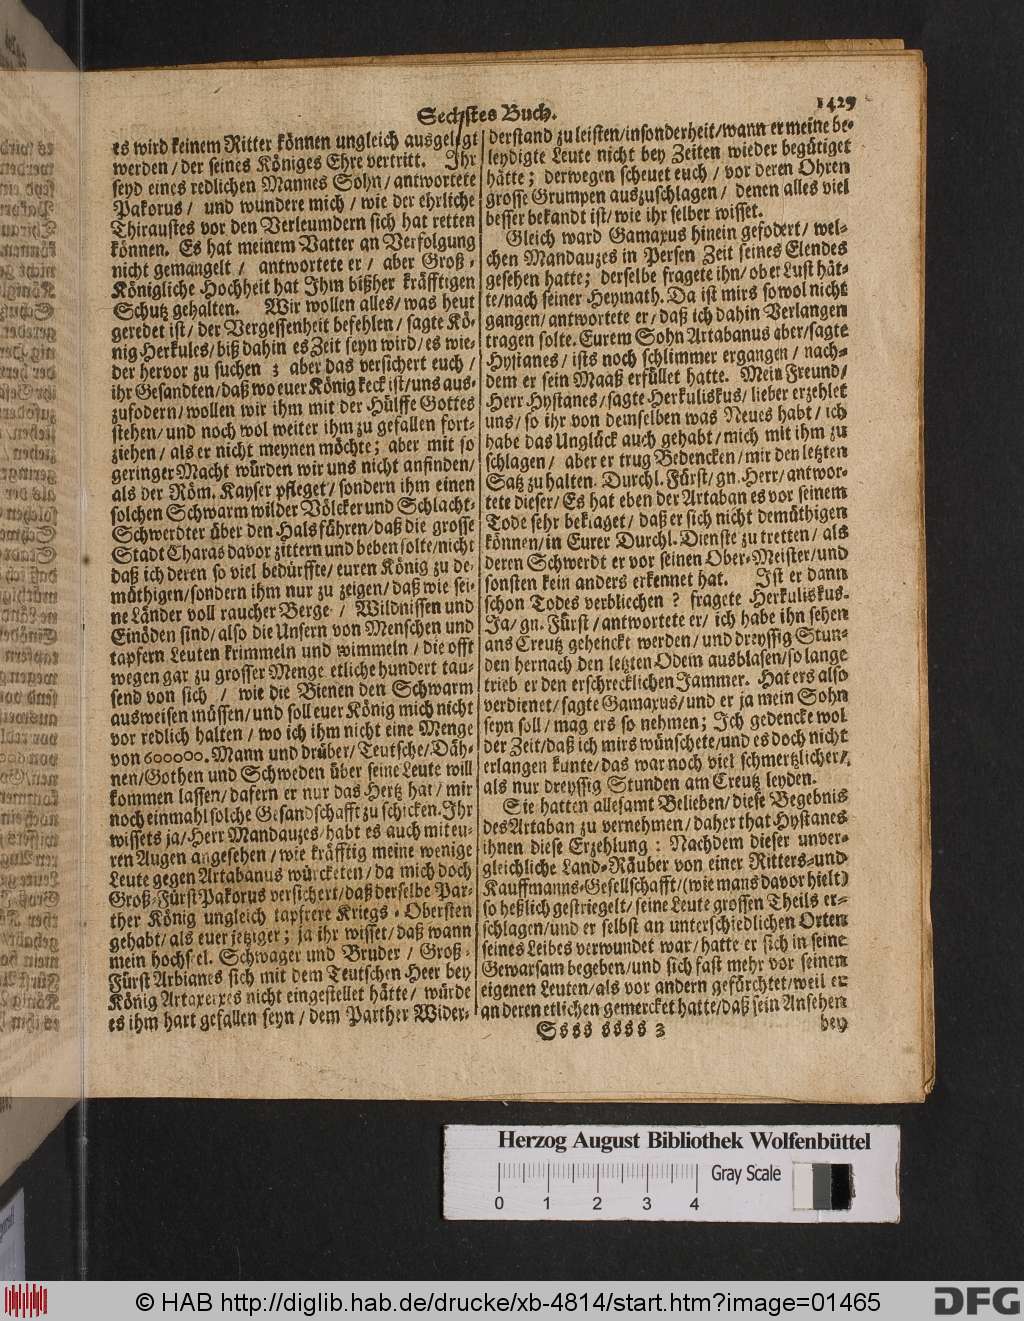 Sechstes Buch.
1429
es wird keinem Ritter können ungleich ausgelegt
werden/ der seines Königes Ehre vertritt. Ihr
seyd eines redlichen Mannes Sohn/ antwortete
Pakorus/ und wundere mich/ wie der ehrliche
Thiraustes vor den Verleumdern sich hat retten
können. Es hat meinem Vatter an Verfolgung
nicht gemangelt/ antwortete er/ aber Groß-
Königliche Hochheit hat Ihm bißher kräfftigen
Schutz gehalten. Wir wollen alles/ was heut
geredet ist/ der Vergessenheit befehlen/ sagte Kö-
nig Herkules/ biß dahin es Zeit seyn wird/ es wie-
der hervor zu suchen; aber das versichert euch/
ihr Gesandten/ daß wo euer König keck ist/ uns aus-
zufodern/ wollen wir ihm mit der Hülffe Gottes
stehen/ und noch wol weiter ihm zu gefallen fort-
ziehen/ als er nicht meynen möchte; aber mit so
geringer Macht würden wir uns nicht anfinden/
als der Röm. Kayser pfleget/ sondern ihm einen
solchen Schwarm wilder Völcker und Schlacht-
Schwerdter über den Hals führen/ daß die grosse
Stadt Charas davor zittern und beben solte/ nicht
daß ich deren so viel bedürffte/ euren König zu de-
müthigen/ sondern ihm nur zu zeigen/ daß wie sei-
ne Länder voll raucher Berge/ Wildnissen und
Einöden sind/ also die Unsern von Menschen und
tapfern Leuten krimmeln und wimmeln/ die offt
wegen gar zu grosser Menge etliche hundert tau-
send von sich/ wie die Bienen den Schwarm
ausweisen müssen/ und soll euer König mich nicht
vor redlich halten/ wo ich ihm nicht eine Menge
von 600000. Mann und drüber/ Teutsche/ Däh-
nen/ Gothen und Schweden über seine Leute will
kommen lassen/ dafern er nur das Hertz hat/ mir
noch einmahl solche Gesandschafft zu schicken. Ihr
wissets ja/ Herr Mandauzes/ habt es auch mit eu-
ren Augen angesehen/ wie kräfftig meine wenige
Leute gegen Artabanus würcketen/ da mich doch
Groß-Fürst Pakorus versichert/ daß derselbe Par-
ther König ungleich tapfrere Kriegs-Obersten
gehabt/ als euer jetziger; ja ihr wisset/ daß wann
mein hochsel. Schwager und Bruder/ Groß-
Fürst Arbianes sich mit dem Teutschen Heer bey
König Artaxerxes nicht eingestellet hätte/ würde
es ihm hart gefallen seyn/ dem Parther Wider-
derstand zu leisten/ insonderheit/ wann er meine be-
leydigte Leute nicht bey Zeiten wieder begütiget
hätte; derwegen scheuet euch/ vor deren Ohren
grosse Grumpen auszuschlagen/ denen alles viel
besser bekandt ist/ wie ihr selber wisset.
Gleich ward Gamaxus hinein gefodert/ wel-
chen Mandauzes in Persen Zeit seines Elendes
gesehen hatte; derselbe fragete ihn/ ob er Lust hät-
te/ nach seiner Heymath. Da ist mirs so wol nicht
gangen/ antwortete er/ daß ich dahin Verlangen
tragen solte. Eurem Sohn Artabanus aber/ sagte
Hystanes/ ists noch schlimmer ergangen/ nach-
dem er sein Maaß erfüllet hatte. Mein Freund/
Herr Hystanes/ sagte Herkuliskus/ lieber erzehlet
uns/ so ihr von demselben was Neues habt/ ich
habe das Unglück auch gehabt/ mich mit ihm zu
schlagen/ aber er trug Bedencken/ mir den letzten
Satz zu halten. Durchl. Fürst/ gn. Herr/ antwor-
tete dieser/ Es hat eben der Artaban es vor seinem
Tode sehr beklaget/ daß er sich nicht demüthigen
können/ in Eurer Durchl. Dienste zu tretten/ als
deren Schwerdt er vor seinen Ober-Meister/ und
sonsten kein anders erkennet hat. Ist er dann
schon Todes verbliechen? fragete Herkuliskus.
Ja/ gn. Fürst/ antwortete er/ ich habe ihn sehen
ans Creutz gehenckt werden/ und dreyssig Stun-
den hernach den letzten Odem ausblasen/ so lange
trieb er den erschrecklichen Jammer. Hat ers also
verdienet/ sagte Gamaxus/ und er ja mein Sohn
seyn soll/ mag ers so nehmen; Ich gedencke wol
der Zeit/ daß ich mirs wünschete/ und es doch nicht
erlangen kunte/ das war noch viel schmertzlicher/
als nur dreyssig Stunden am Creutz leyden.
Sie hatten allesamt Belieben/ diese Begebnis
des Artaban zu vernehmen/ daher that Hystanes
ihnen diese Erzehlung: Nachdem dieser unver-
gleichliche Land-Räuber von einer Ritters- und
Kauffmanns-Gesellschafft/ (wie mans davor hielt)
so heßlich gestriegelt/ seine Leute grossen Theils er-
schlagen/ und er selbst an unterschiedlichen Orten
seines Leibes verwundet war/ hatte er sich in seine
Gewarsam begeben/ und sich fast mehr vor seinem
eigenen Leuten/ als vor andern gefürchtet/ weil er
an deren etlichen gemercket hatte/ daß sein Ansehen
Ssss ssss 3
bey
Herzog August Bibliothek Wolfenbüttel
Gray Scale
0 1 2 3 4
© HAB http://diglib.hab.de/drucke/xb-4814/start.htm?image=01465
DFG